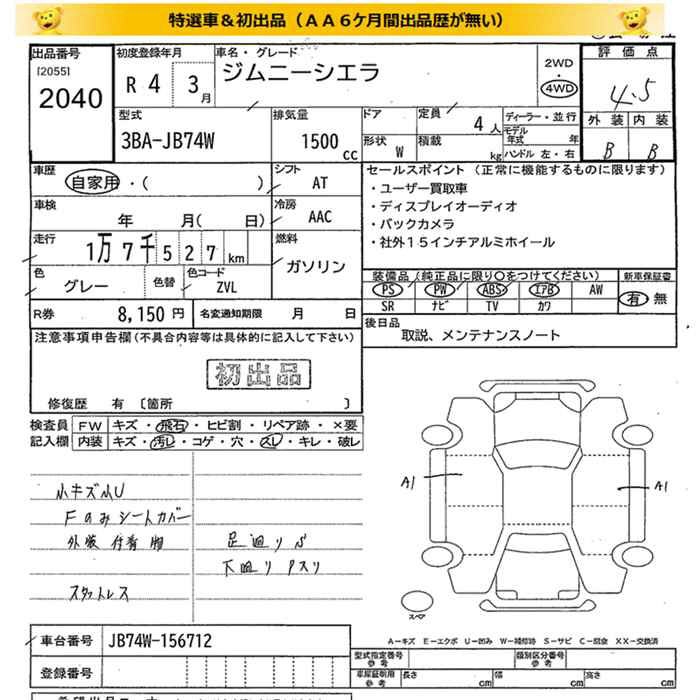 特選車＆初出品（ＡＡ６ケ月間出品歴が無い）
出品番号
[2055]
2040
初度登録年月
R 4 3 月
車名・グレード
ジムニーシエラ
2WD
・
4WD
評価点
4.5
外装 内装
B B
型式
3BA-JB74W
排気量
1500 cc
ドア
形状
W
定員
4 人
積載
kg
ディーラー・並行
モデル年式 年
ハンドル 左・右
車歴
自家用・( )
シフト
AT
車検
年 月( 日)
冷房
AAC
走行
1万 7千 5 2 7 km
燃料
ガソリン
色
グレー
色替
色コード
ZVL
R券
8,150 円
名変通知期限 月 日
セールスポイント（正常に機能するものに限ります）
・ユーザー買取車
・ディスプレイオーディオ
・バックカメラ
・社外１５インチアルミホイール
装備品（純正品に限り○をつけてください）
PS PW ABS エアB AW
SR ナビ TV カワ
新車保証書
有・無
後日品
取説、メンテナンスノート
注意事項申告欄（不具合内容等は具体的に記入して下さい）
初出品
修復歴 有 〔箇所 〕
検査員記入欄
FW キズ・飛石・ヒビ割・リペア跡・×要
内装 キズ・汚レ・コゲ・穴・スレ・キレ・破レ
小キズ小U
Fのみシートカバー
スタットレス
足廻りS
下廻りサスリ
A1
A1
スペア
A－キズ E－エクボ U－凹み W－補修跡 S－サビ C－腐食 XX－交換済
車台番号
JB74W-156712
登録番号
型式指定番号
参考
類別区分番号
参考
車屋証明用
参考
長さ cm
幅 cm
高さ cm